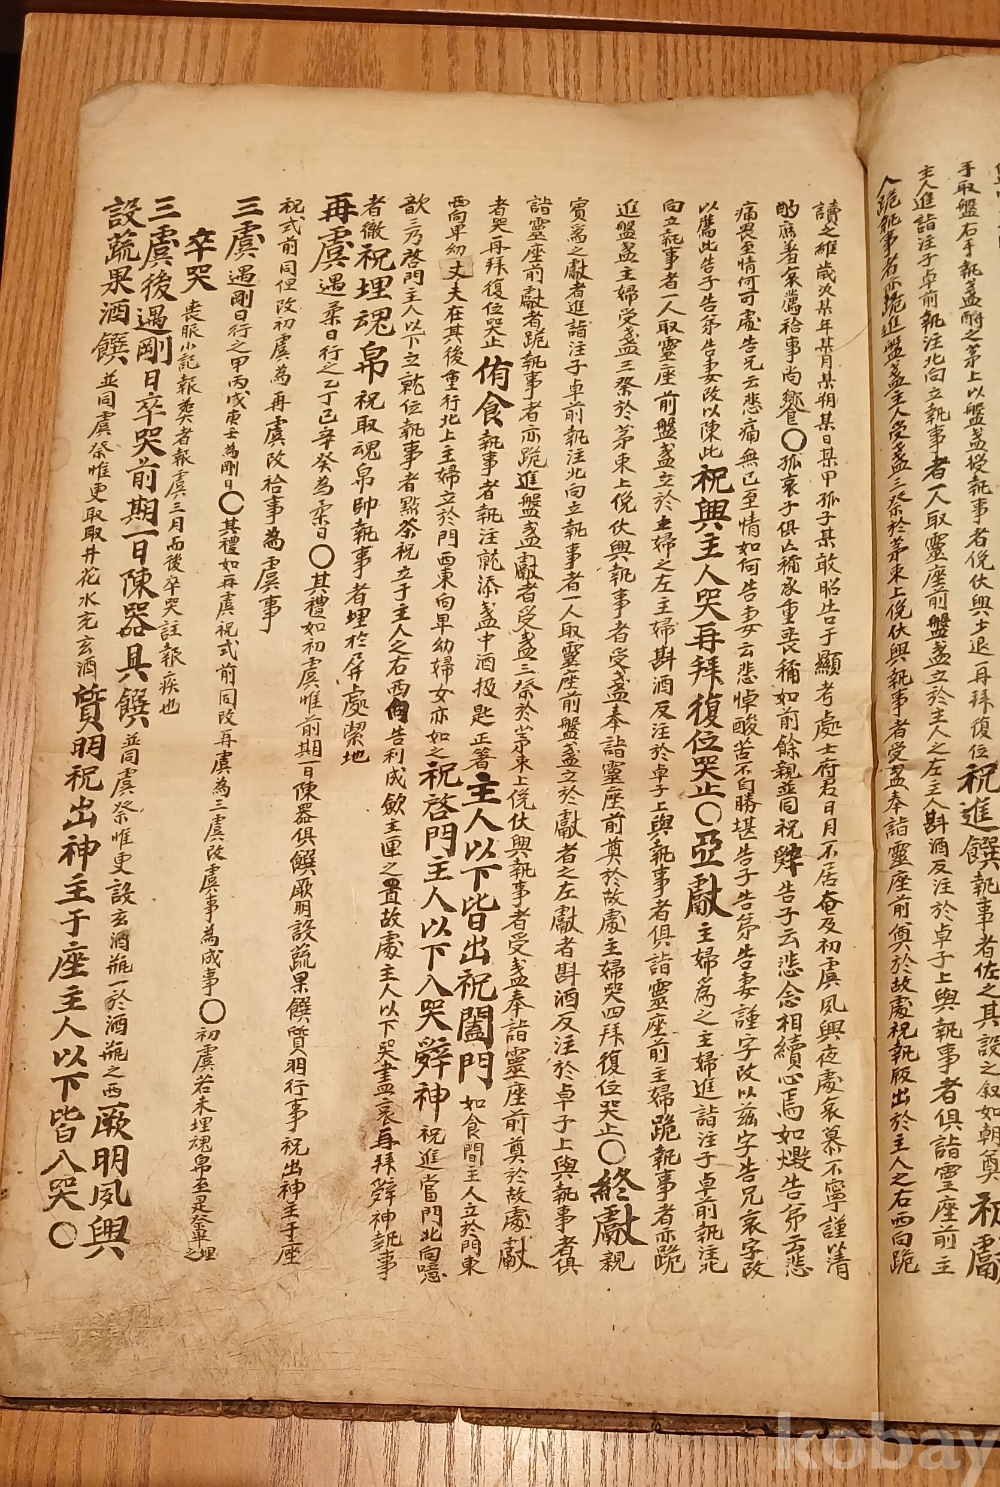 手取盤右手執盞酹之茅上以盤盞授執事者俛伏興少退再拜復位祝進饌執事者佐之其設之叙如朝奠初獻
主人進詣注子卓前執注北向立執事者一人取靈座前盤盞立於主人之左主人斟酒反注於卓子上與執事者俱詣靈座前主
人跪執事者亦跪進盤盞主人受盞三祭於茅束上俛伏興執事者受盞奉詣靈座前奠於故處祝執版出於主人之右西向跪
讀之維歲次某年某月某朔某日某甲孤子某敢昭告于顯考處士府君日月不居奄及初虞夙興夜處哀慕不寧謹以清
酌庶羞哀薦祫事尚饗〇孤哀子俱亡稱承重喪稱如前餘親並同祝辭告子云悲念相續心焉如燬告弟云悲
痛畏至情何可處告兄云悲痛無已至情如何告妻云悲悼酸苦不自勝堪告子告弟告妻謹字改以茲字告兄哀字改
以薦此告子告弟告妻改以陳此祝興主人哭再拜復位哭止〇亞獻主婦爲之主婦進詣注子卓前執注北
向立執事者一人取靈座前盤盞立於主婦之左主婦斟酒反注於卓子上與執事者俱詣靈座前主婦跪執事者亦跪
進盤盞主婦受盞三祭於茅束上俛伏興執事者受盞奉詣靈座前奠於故處主婦哭四拜復位哭止〇終獻親
賓爲之獻者進詣注子卓前執注北向立執事者一人取靈座前盤盞立於獻者之左獻者斟酒反注於卓子上與執事者俱
詣靈座前獻者跪執事者亦跪進盤盞獻者受盞三祭於茅束上俛伏興執事者受盞奉詣靈座前奠於故處獻
者哭再拜復位哭止侑食執事者執注就添盞中酒扱匙正箸主人以下皆出祝闔門如食間主人立於門東
西向卑幼丈夫在其後重行北上主婦立於門西東向卑幼婦女亦如之祝啓門主人以下入哭辭神祝進當門北向噫
歆三乃啓門主人以下立就位執事者點茶祝立于主人之右西向告利成斂主匣之置故處主人以下哭盡哀再拜辭神執事
者徹祝埋魂帛祝取魂帛帥執事者埋於屏處潔地
再虞遇柔日行之乙丁己辛癸為柔日〇其禮如初虞惟前期一日陳器俱饌厥明設蔬果饌質明行事祝出神主于座
祝式前同但改初虞為再虞改祫事為虞事
三虞遇剛日行之甲丙戊庚壬為剛日〇其禮如再虞祝式前同改再虞為三虞改虞事為成事〇初虞若未埋魂帛至是祭畢埋之
卒哭喪服小記報葬者報虞三月而後卒哭註報疾也
三虞後遇剛日卒哭前期一日陳器具饌並同虞祭惟更設玄酒瓶一於酒瓶之西厥明夙興
設蔬果酒饌並同虞祭惟更取取井花水充玄酒質明祝出神主于座主人以下皆入哭〇
kobay